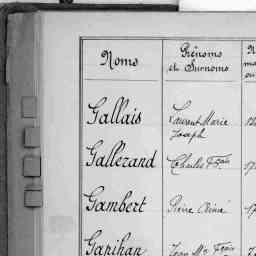 Noms
Prénoms
et Surnoms
Gallais
Laurent Marie
Joseph
Gallérand
Charles Fçois
Gambert
Pierre Aimé
Ganihan
Jean Mie Fçois